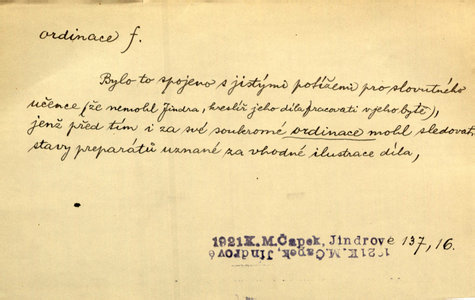 ordinace f.
Bylo to spojeno s jistými potížemi pro slovutného
učence (že nemohl Jindra, kreslíř jeho díla, pracovati v jeho bytě),
jenž před tím i za své soukromé ordinace mohl sledovat
stavy preparátů uznané za vhodné ilustrace díla,
1921 K.M.Čapek, Jindrové 137,16.
1921K.M.Čapek, Jindrové